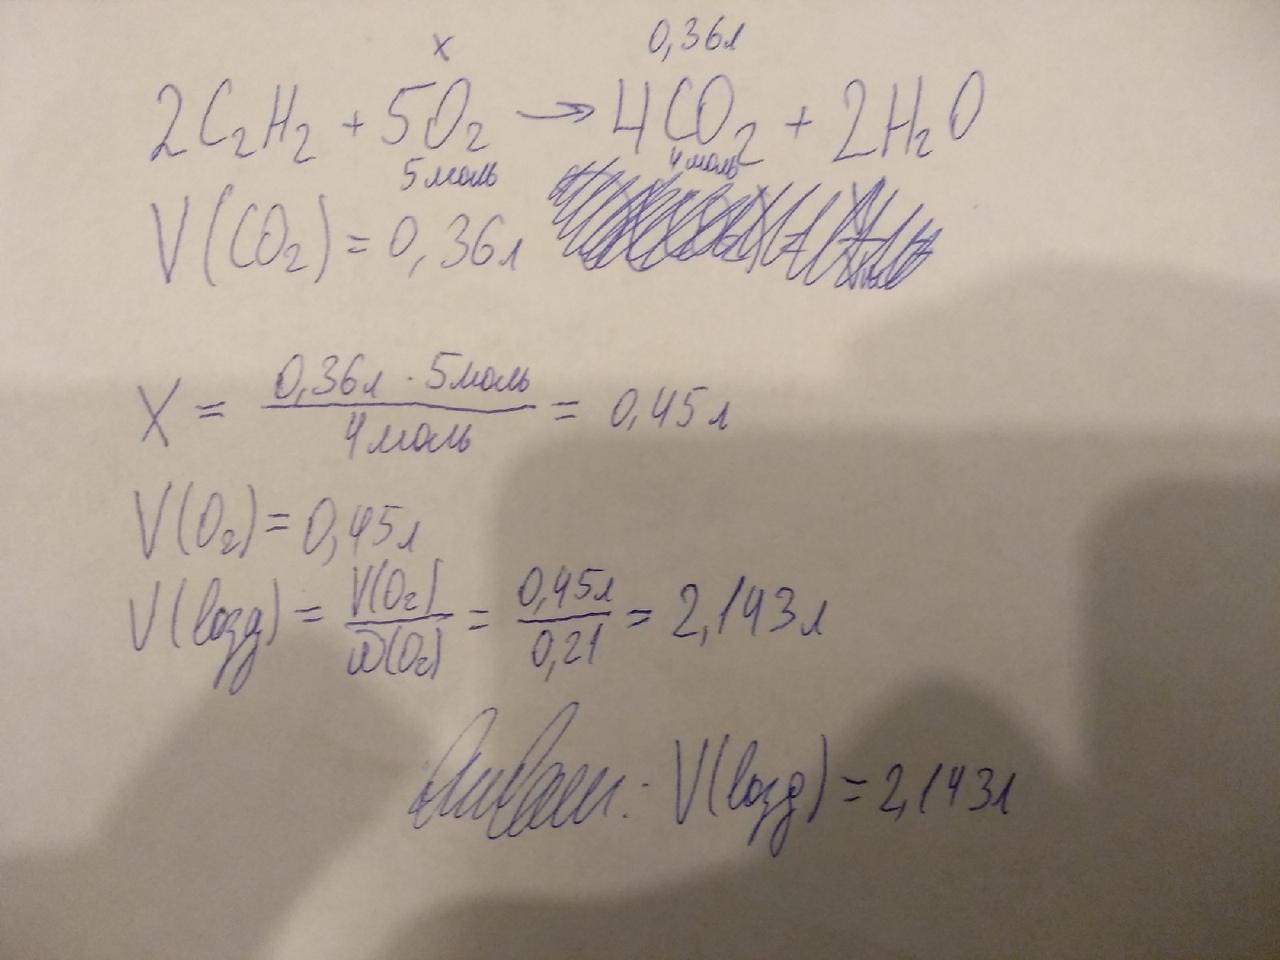 x 0,36л
2C₂H₂ + 5O₂ → 4CO₂ + 2H₂O
5 моль 4 моль
V(CO₂) = 0,36л
X = 0,36л · 5 моль / 4 моль = 0,45 л
V(O₂) = 0,45л
V(возд) = V(O₂) / φ(O₂) = 0,45л / 0,21 = 2,143 л
Ответ: V(возд) = 2,143л